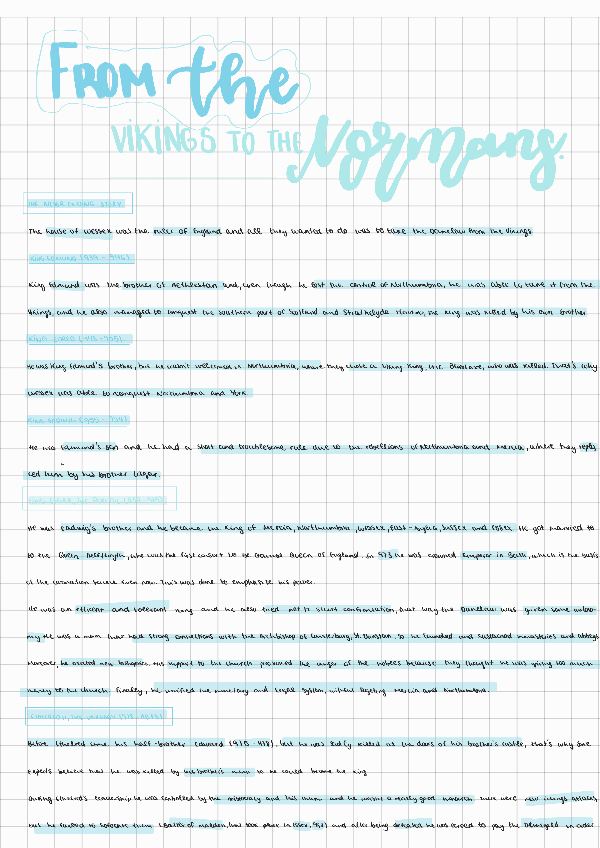 FROM the
VIKINGS TO THE Normans.
THE NEVER ENDING STORY
The house of Wessex was the ruler of England and all they wanted to do was to take the Danelaw from the Vikings.
KING EDMUND (939 - 946)
King Edmund was the brother of Aethlestan and, even though he lost the control of Northumbria, he was able to take it from the
Vikings, and he also managed to conquest the southern part of Scotland and Strathclyde. However, the king was killed by his own brother.
KING EDRED
He was King Edmund's brother, but he wasn't welcomed in Northumbria, where they chose a Viking King, Eric Bloodaxe, who was killed. That's why
Wessex was able to conquest Northumbria and York.
KING EADWIG (955 - 959)
He was Edmund's son and he had a short and troublesome rule due to the rebellions of Northumbria and Mercia, where they repla-
ced him by his brother Edgar.
KING EDGAR THE
He was Eadwig's brother and he became the King of Mercia, Northumbria, Wessex, East-Anglia, Sussex and Essex. He got married to
to the Queen, who was the first consort to be crowned Queen of England. In 973 he was crowned Emperor in Bath, which is the basis
of the coronation service even now. This was done to emphasize his power.
He was an efficient and tolerant king and he also tried not to start confrontation, that why the Danelaw was given some autono-
my. He was a man that had strong connections with the Archbishop of Canterbury, St. Dunstan. So he founded and sustained monasteries and abbeys.
Moreover, he created new bishoprics. His support to the church provoked the anger of the nobles because they thought he was giving too much
money to the church. Finally, he unified the monetary and legal system, without Mercia and Northumbria.
THE UNREADY
Before Ethelred came his half-brother Edward (975 - 978), but he was killed at the doors of his brother's castle, that's why some
experts believe that he was killed by his brother's mum so he could become the king.
During Ethelred's leadership he was controlled by the aristocracy and his mum and he wasn't a really good monarch. There were new vikings attacks,
but he wanted to them (Battle of Maldon, that took place in Essex, 991) and after being defeated he was forced to pay the Danegeld in order